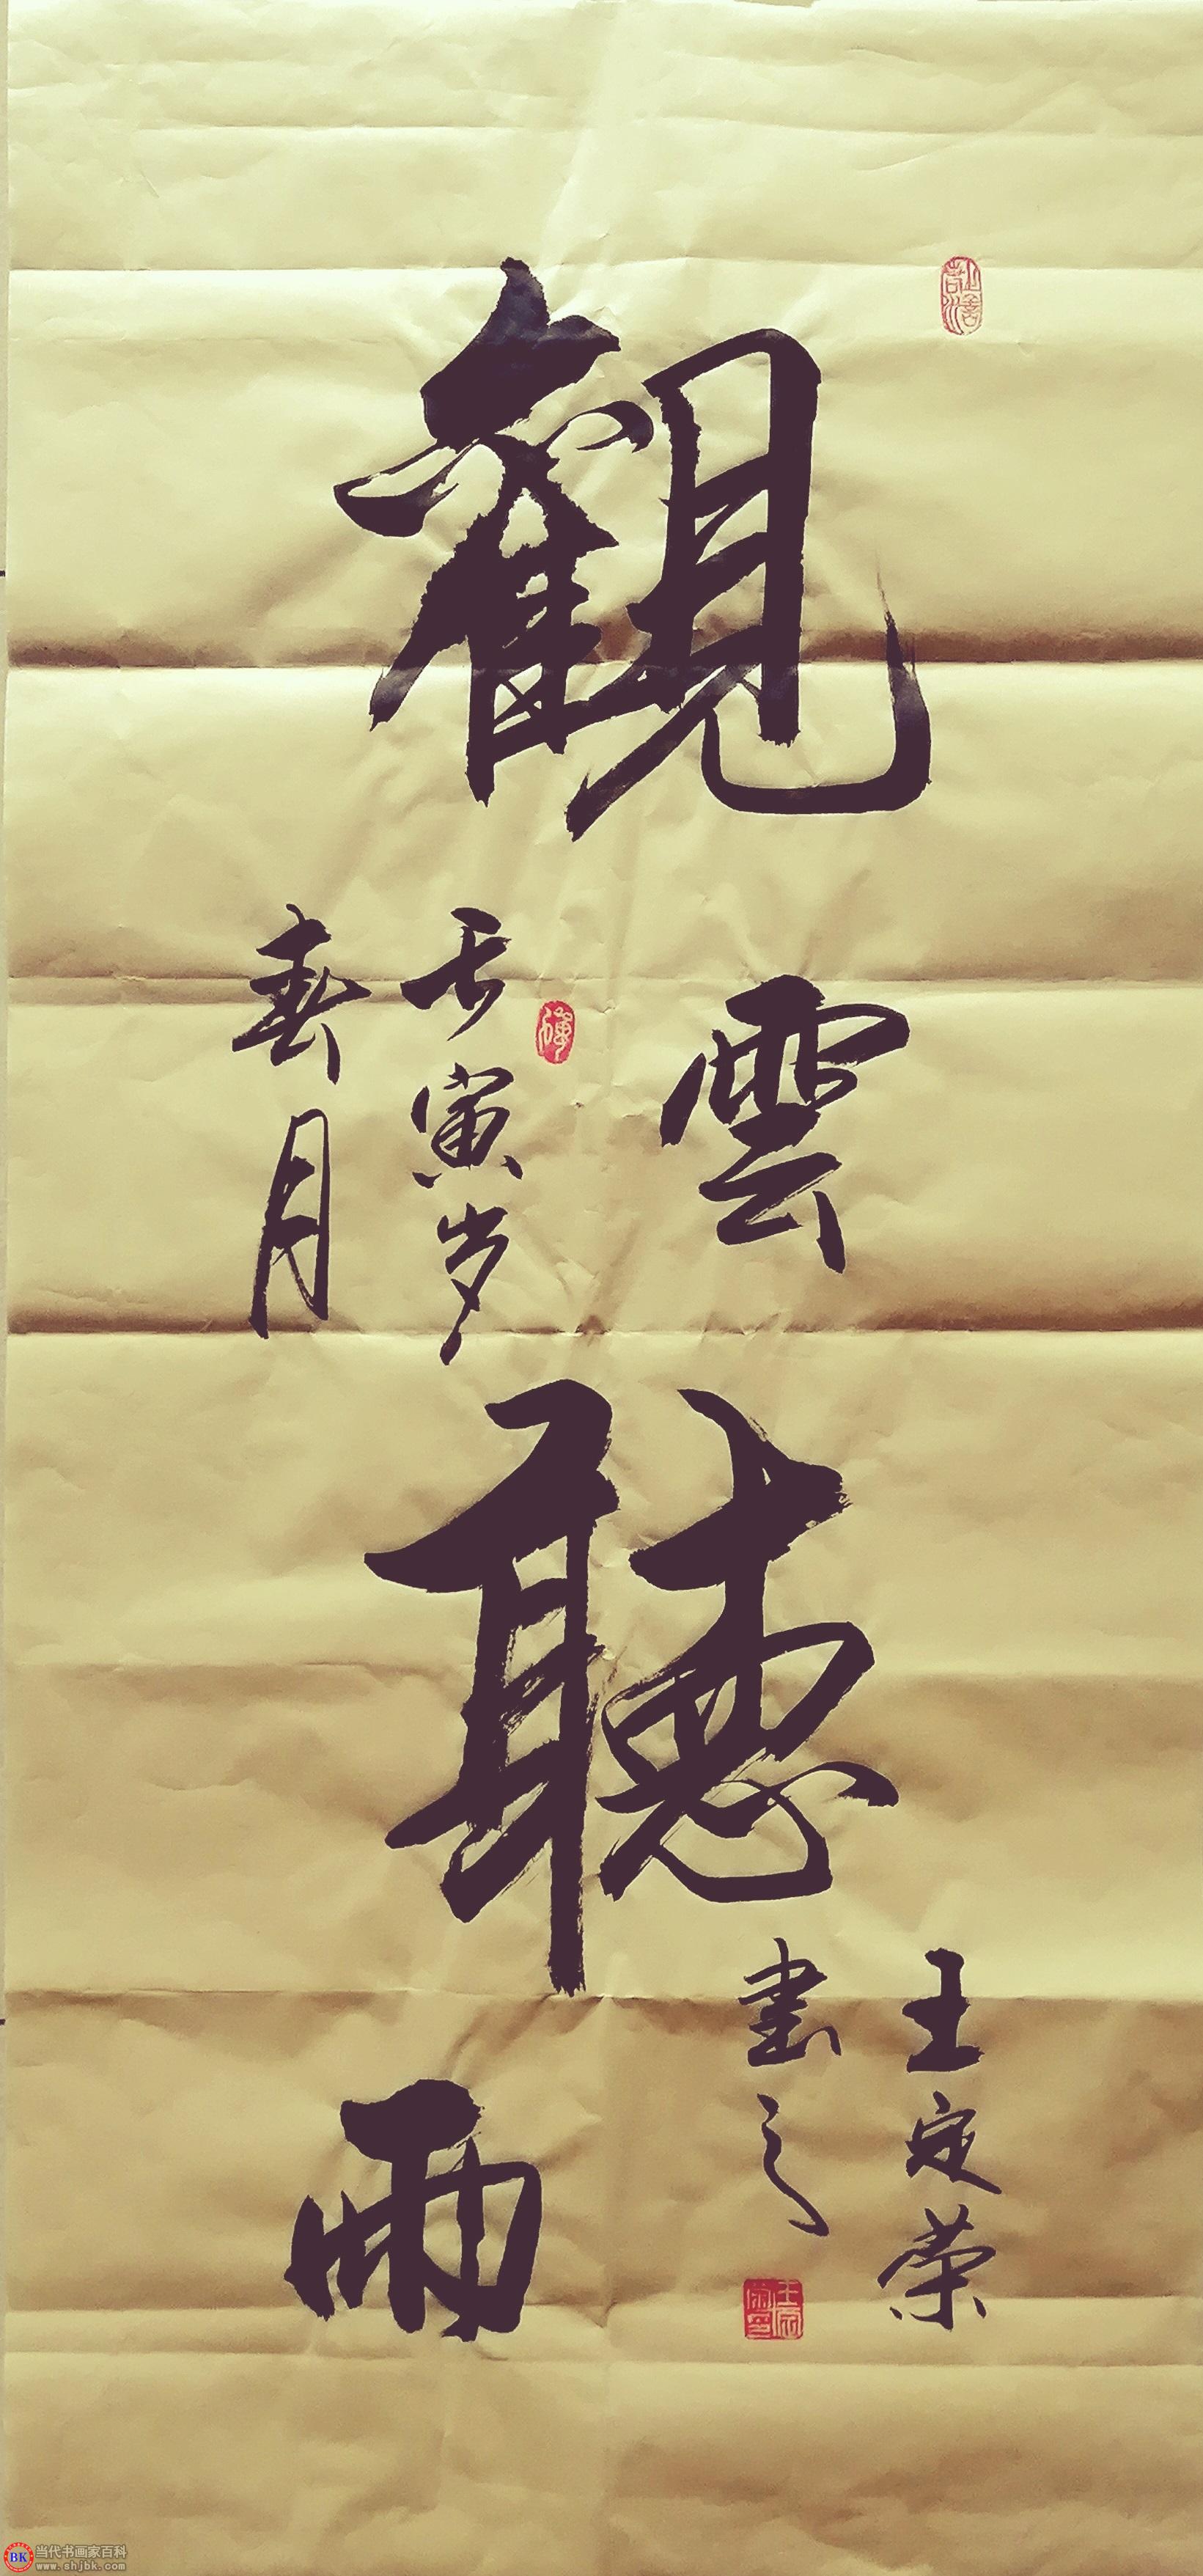 觀雲聽雨
壬寅岁
春月
王定荣
書之
当代书画家百科
www.shjbk.com
BK